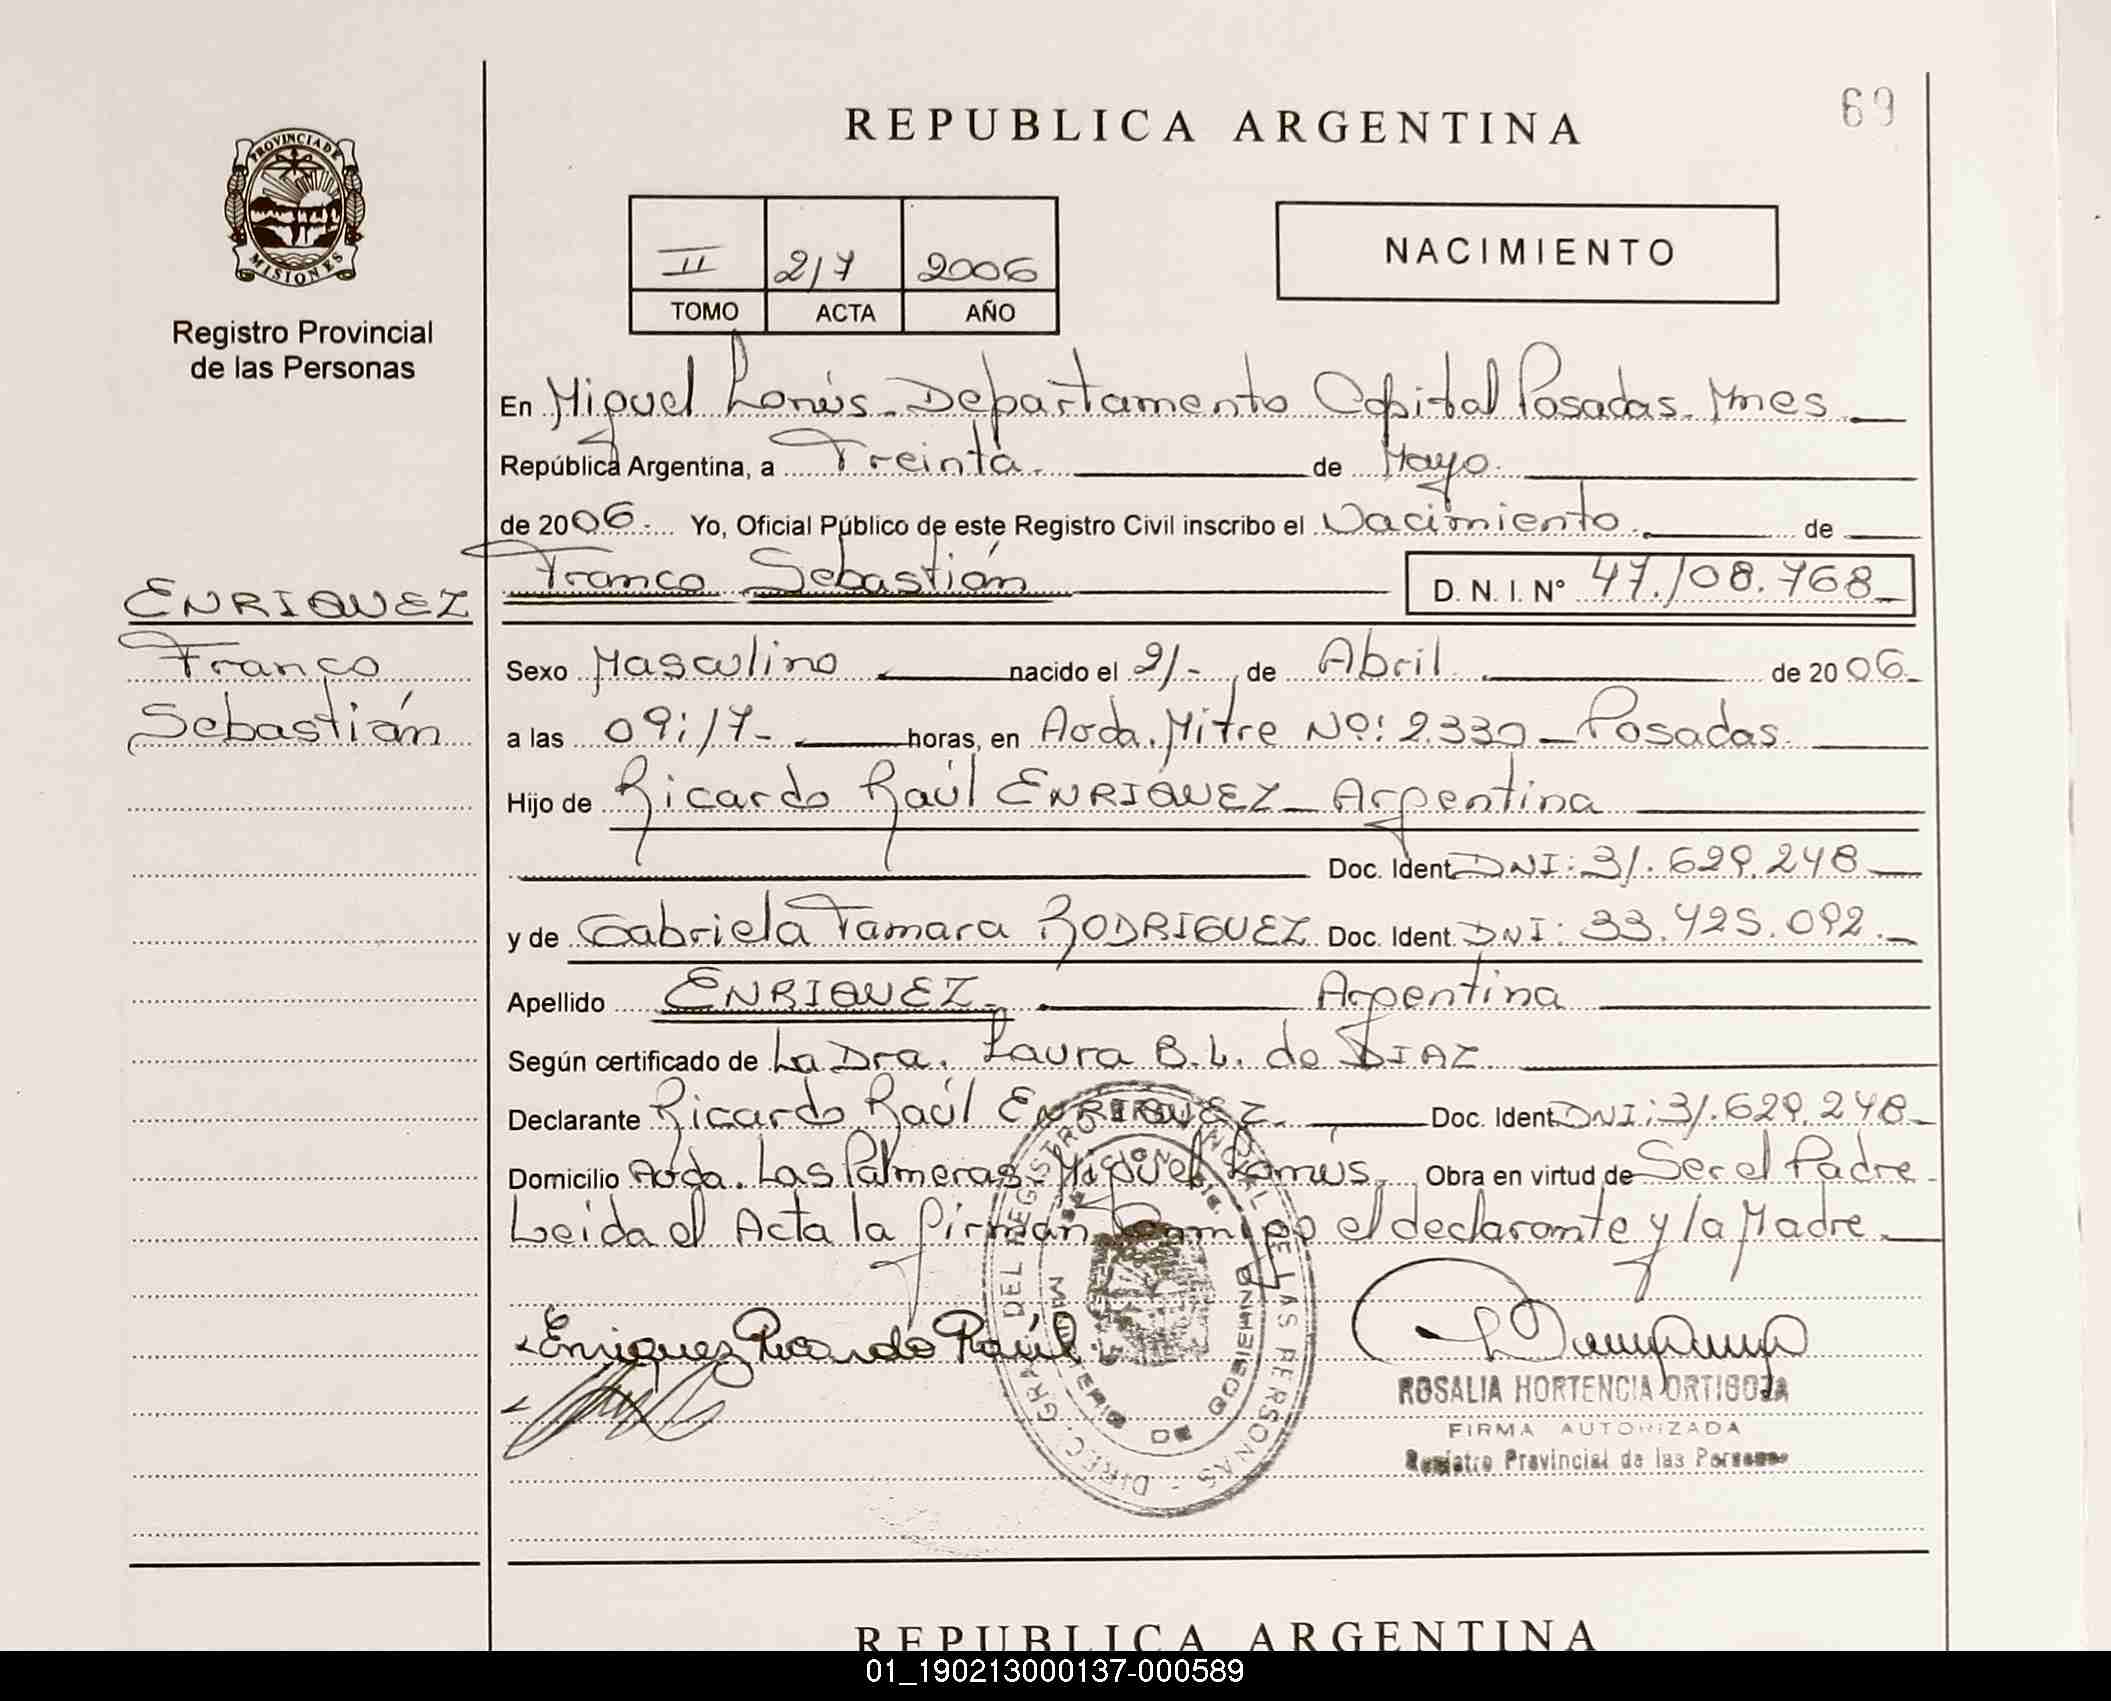 69
REPUBLICA ARGENTINA
PROVINCIA DE
MISIONES
Registro Provincial
de las Personas
II 217 2006
TOMO ACTA AÑO
NACIMIENTO
En Miguel Lanús - Departamento Capital Posadas - Mnes
República Argentina, a Treinta. de Mayo.
de 2006.- Yo, Oficial Público de este Registro Civil inscribo el Nacimiento. de
Franco Sebastián D. N. I. Nº 47.108.768
ENRIQUEZ
Franco
Sebastián
Sexo Masculino nacido el 21.- de Abril de 2006.
a las 09:17- horas, en Avda. Mitre Nº: 2.330 - Posadas.
Hijo de Ricardo Raúl ENRIQUEZ - Argentina
Doc. Ident. DNI: 31.629.248
y de Gabriela Tamara RODRIGUEZ Doc. Ident. DNI: 33.425.092.-
Apellido ENRIQUEZ.- Argentina
Según certificado de La Dra. Laura B. L. de DIAZ
Declarante Ricardo Raúl ENRIQUEZ. Doc. Ident. DNI: 31.629.248-
Domicilio Avda. Las Palmeras - Miguel Lanús. Obra en virtud de Ser el Padre -
Leida el Acta la firman conmigo el declarante y la Madre.
Enriquez Ricardo Raúl
DIREC. GRAL. DEL REGISTRO PROVINCIAL DE LAS PERSONAS
MINISTERIO DE GOBIERNO
MISIONES
ROSALIA HORTENCIA ORTIGOZA
FIRMA AUTORIZADA
Registro Provincial de las Personas
REPUBLICA ARGENTINA
01_190213000137-000589